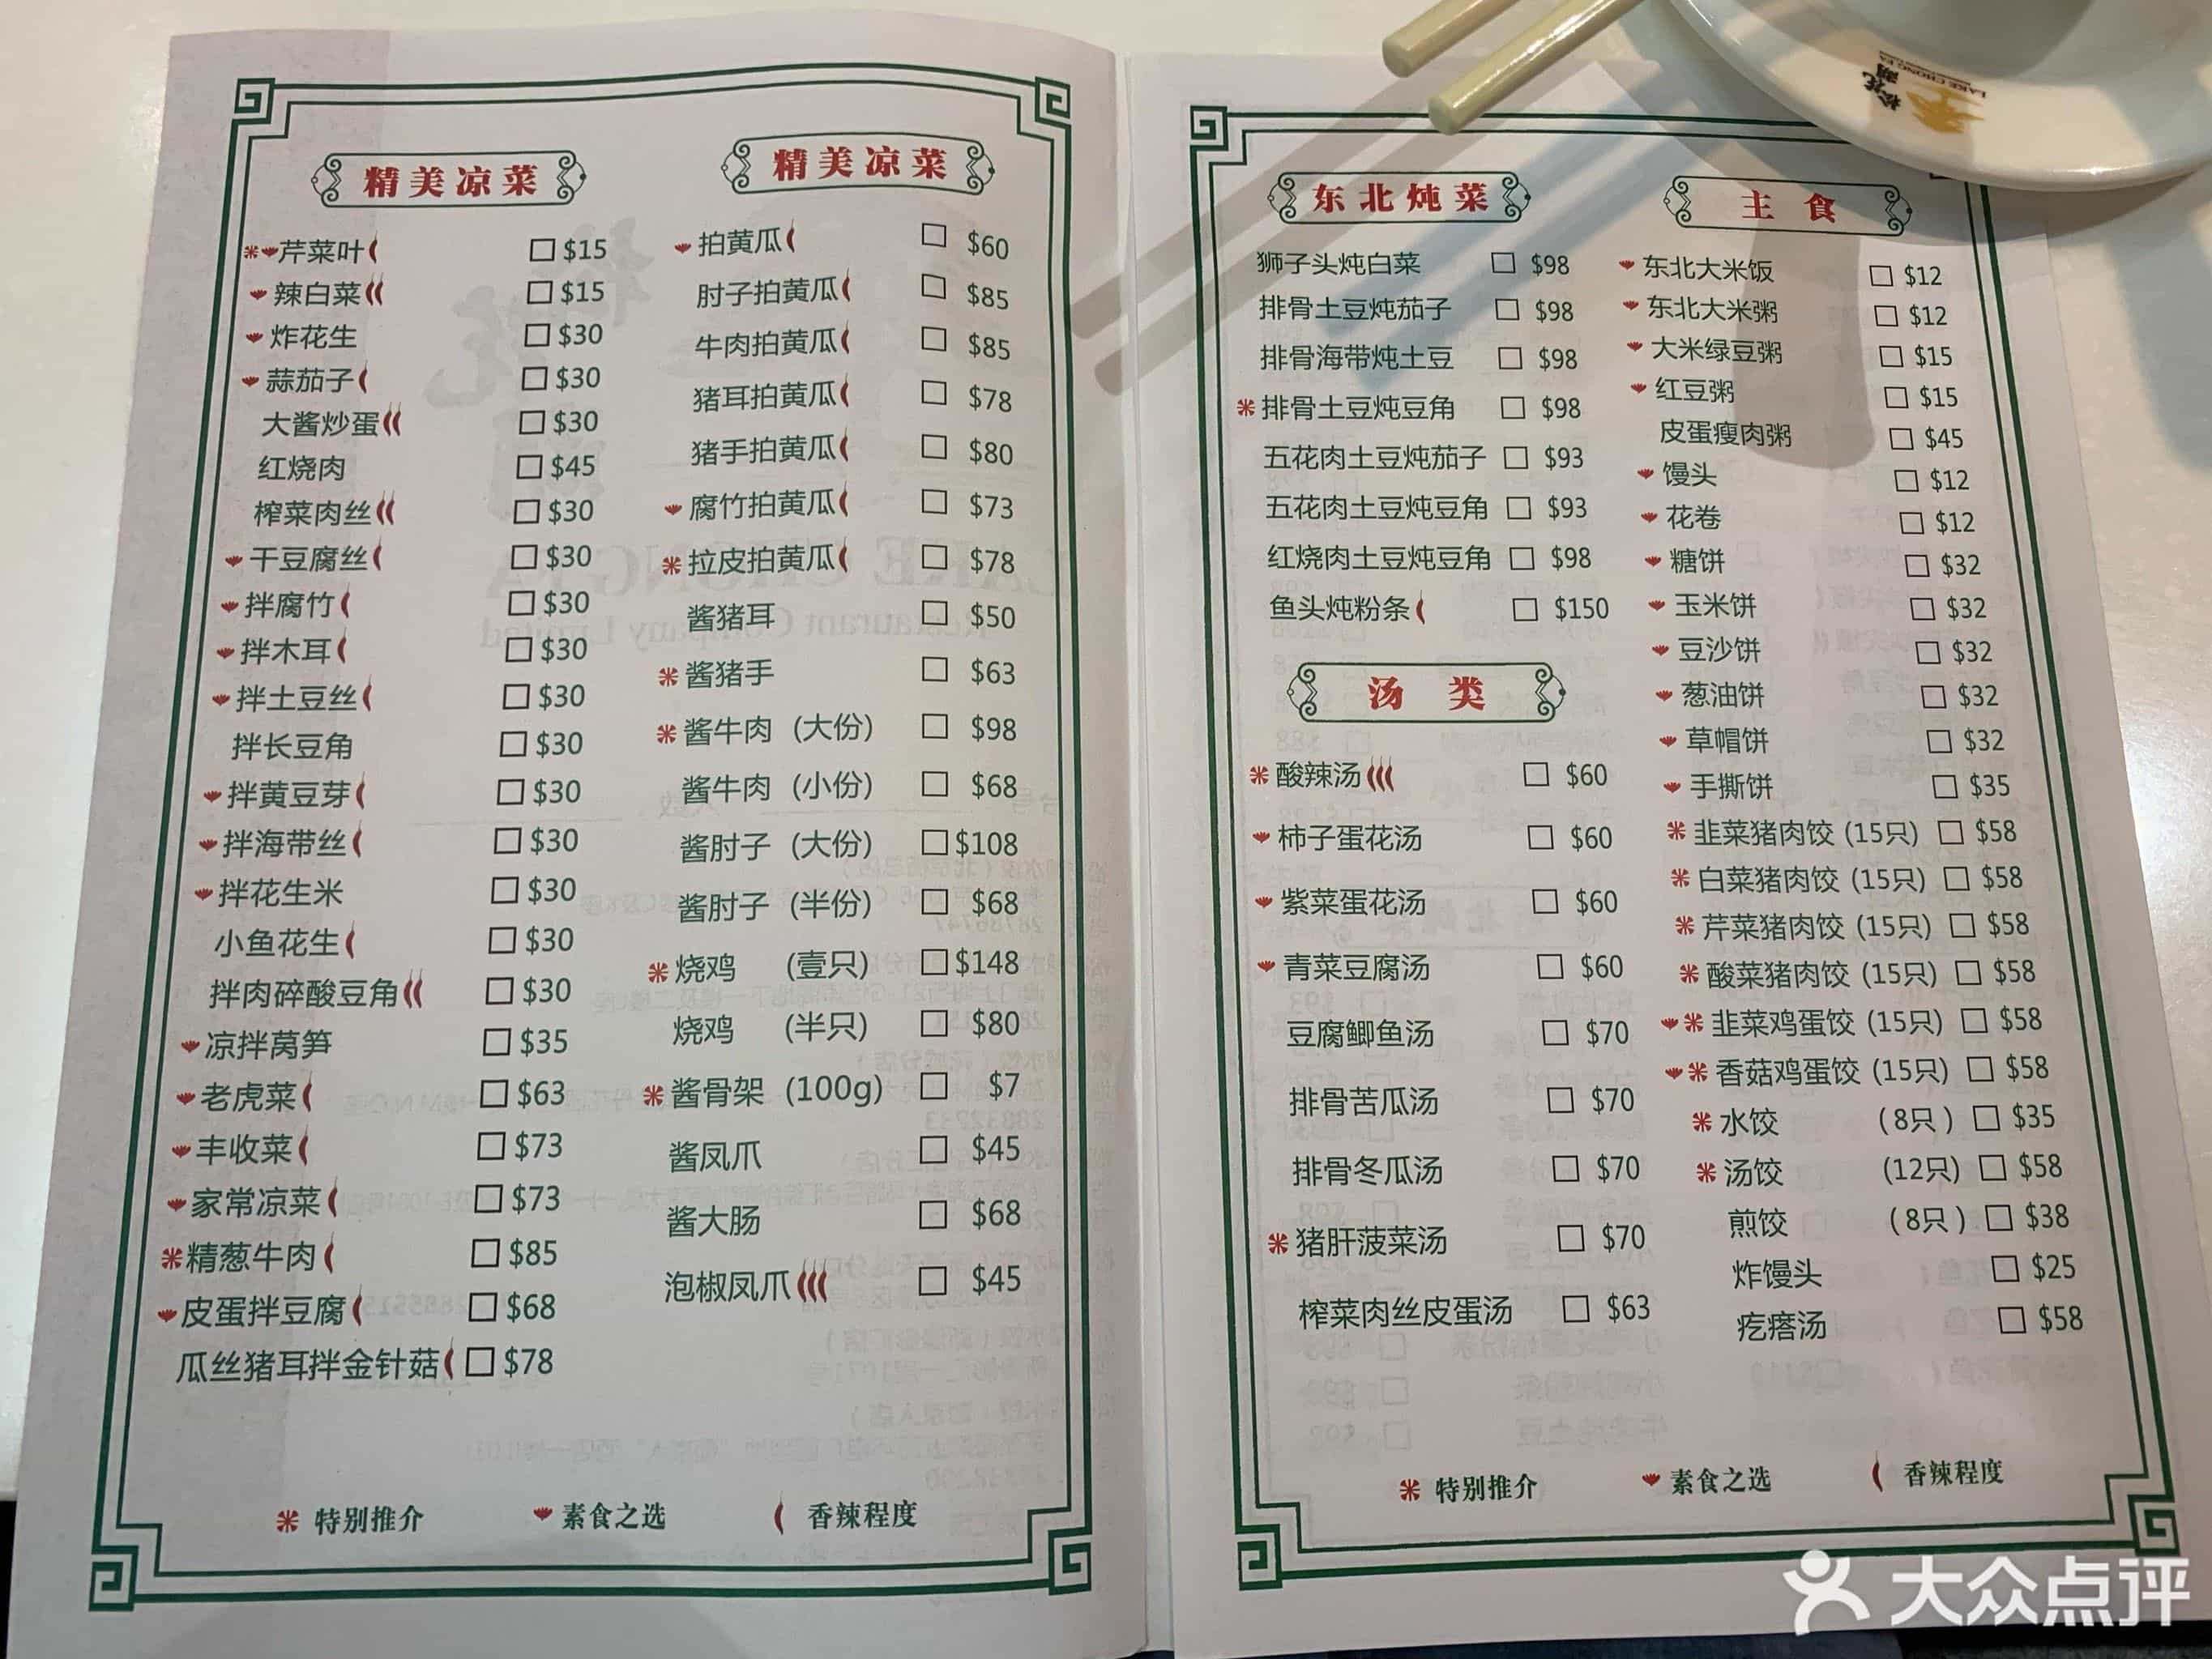 精美凉菜
芹菜叶 $15
辣白菜 $15
炸花生 $30
蒜茄子 $30
大酱炒蛋 $30
红烧肉 $45
榨菜肉丝 $30
干豆腐丝 $30
拌腐竹 $30
拌木耳 $30
拌土豆丝 $30
拌长豆角 $30
拌黄豆芽 $30
拌海带丝 $30
拌花生米 $30
小鱼花生 $30
拌肉碎酸豆角 $30
凉拌莴笋 $35
老虎菜 $63
丰收菜 $73
家常凉菜 $73
精葱牛肉 $85
皮蛋拌豆腐 $68
瓜丝猪耳拌金针菇 $78
精美凉菜
拍黄瓜 $60
肘子拍黄瓜 $85
牛肉拍黄瓜 $85
猪耳拍黄瓜 $78
猪手拍黄瓜 $80
腐竹拍黄瓜 $73
拉皮拍黄瓜 $78
酱猪耳 $50
酱猪手 $63
酱牛肉 (大份) $98
酱牛肉 (小份) $68
酱肘子 (大份) $108
酱肘子 (半份) $68
烧鸡 (壹只) $148
烧鸡 (半只) $80
酱骨架 (100g) $7
酱凤爪 $45
酱大肠 $68
泡椒凤爪 $45
特别推介 素食之选 香辣程度
东北炖菜
狮子头炖白菜 $98
排骨土豆炖茄子 $98
排骨海带炖土豆 $98
排骨土豆炖豆角 $98
五花肉土豆炖茄子 $93
五花肉土豆炖豆角 $93
红烧肉土豆炖豆角 $98
鱼头炖粉条 $150
汤类
酸辣汤 $60
柿子蛋花汤 $60
紫菜蛋花汤 $60
青菜豆腐汤 $60
豆腐鲫鱼汤 $70
排骨苦瓜汤 $70
排骨冬瓜汤 $70
猪肝菠菜汤 $70
榨菜肉丝皮蛋汤 $63
主食
东北大米饭 $12
东北大米粥 $12
大米绿豆粥 $15
红豆粥 $15
皮蛋瘦肉粥 $45
馒头 $12
花卷 $12
糖饼 $32
玉米饼 $32
豆沙饼 $32
葱油饼 $32
草帽饼 $32
手撕饼 $35
韭菜猪肉饺 (15只) $58
白菜猪肉饺 (15只) $58
芹菜猪肉饺 (15只) $58
酸菜猪肉饺 (15只) $58
韭菜鸡蛋饺 (15只) $58
香菇鸡蛋饺 (15只) $58
水饺 (8只) $35
汤饺 (12只) $58
煎饺 (8只) $38
炸馒头 $25
疙瘩汤 $58
特别推介 素食之选 香辣程度
大众点评